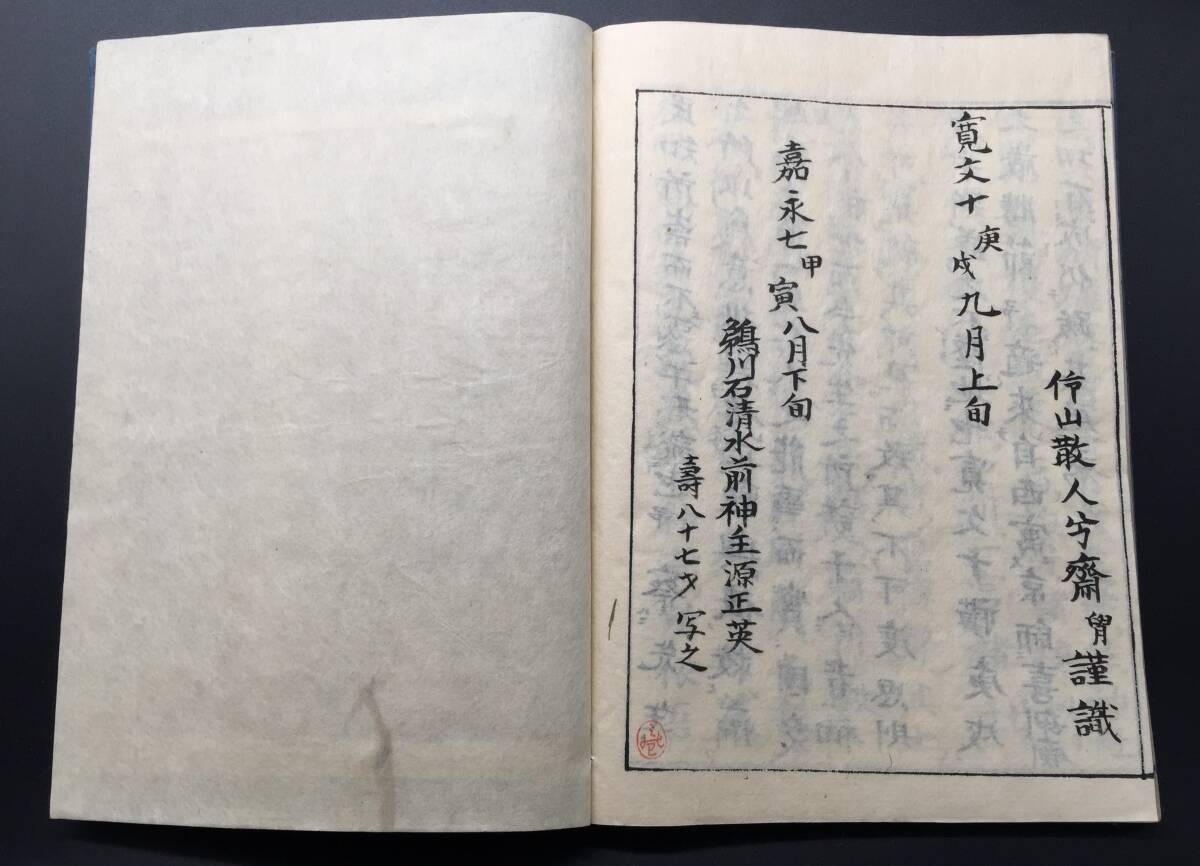 伶山散人宁齋䏍謹識
寛文十庚戌九月上旬
嘉永七甲寅八月下旬
鵜川石清水前神主源正英
壽八十七才写之